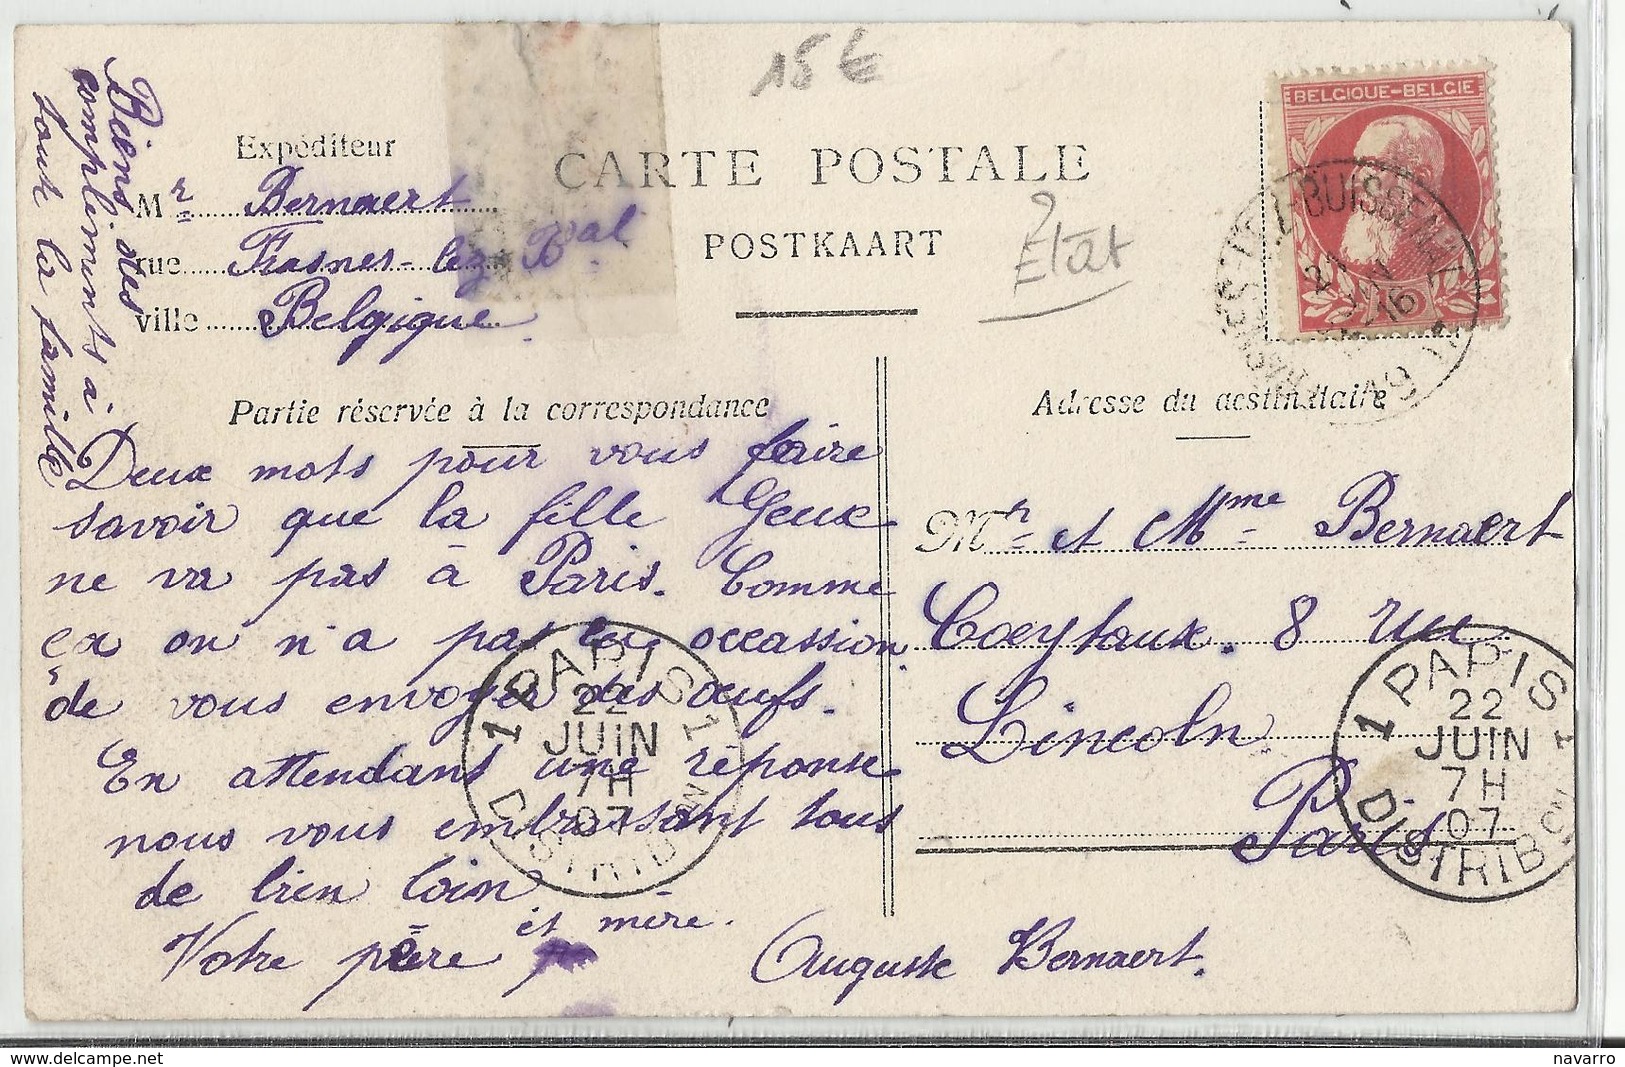 15 €
CARTE POSTALE
POSTKAART
Etat
Expéditeur
Mr Bernaert
rue Frasnes-lez Bal
ville Belgique
Biens des
complements à
toute la famille
BELGIQUE-BELGIE
10
BUISSENAL
21 JUIN 16
1907
Partie réservée à la correspondance
Deux mots pour vous faire
savoir que la fille Geux
ne va pas à Paris. Comme
ça on n'a pas les occassion
de vous envoyer des œufs.
En attendans une réponse
nous vous embrassant tous
de bien loin
et mère.
Votre père
Auguste Bernaert.
Adresse du destinataire
Mr et Mme Bernaert
Coeytaux. 8 rue
Lincoln.
Paris.
1 PARIS 1
22
JUIN
7H
07
DISTRIBON
1 PARIS 1
22
JUIN
7H
07
DISTRIBON
navarro
www.delcampe.net